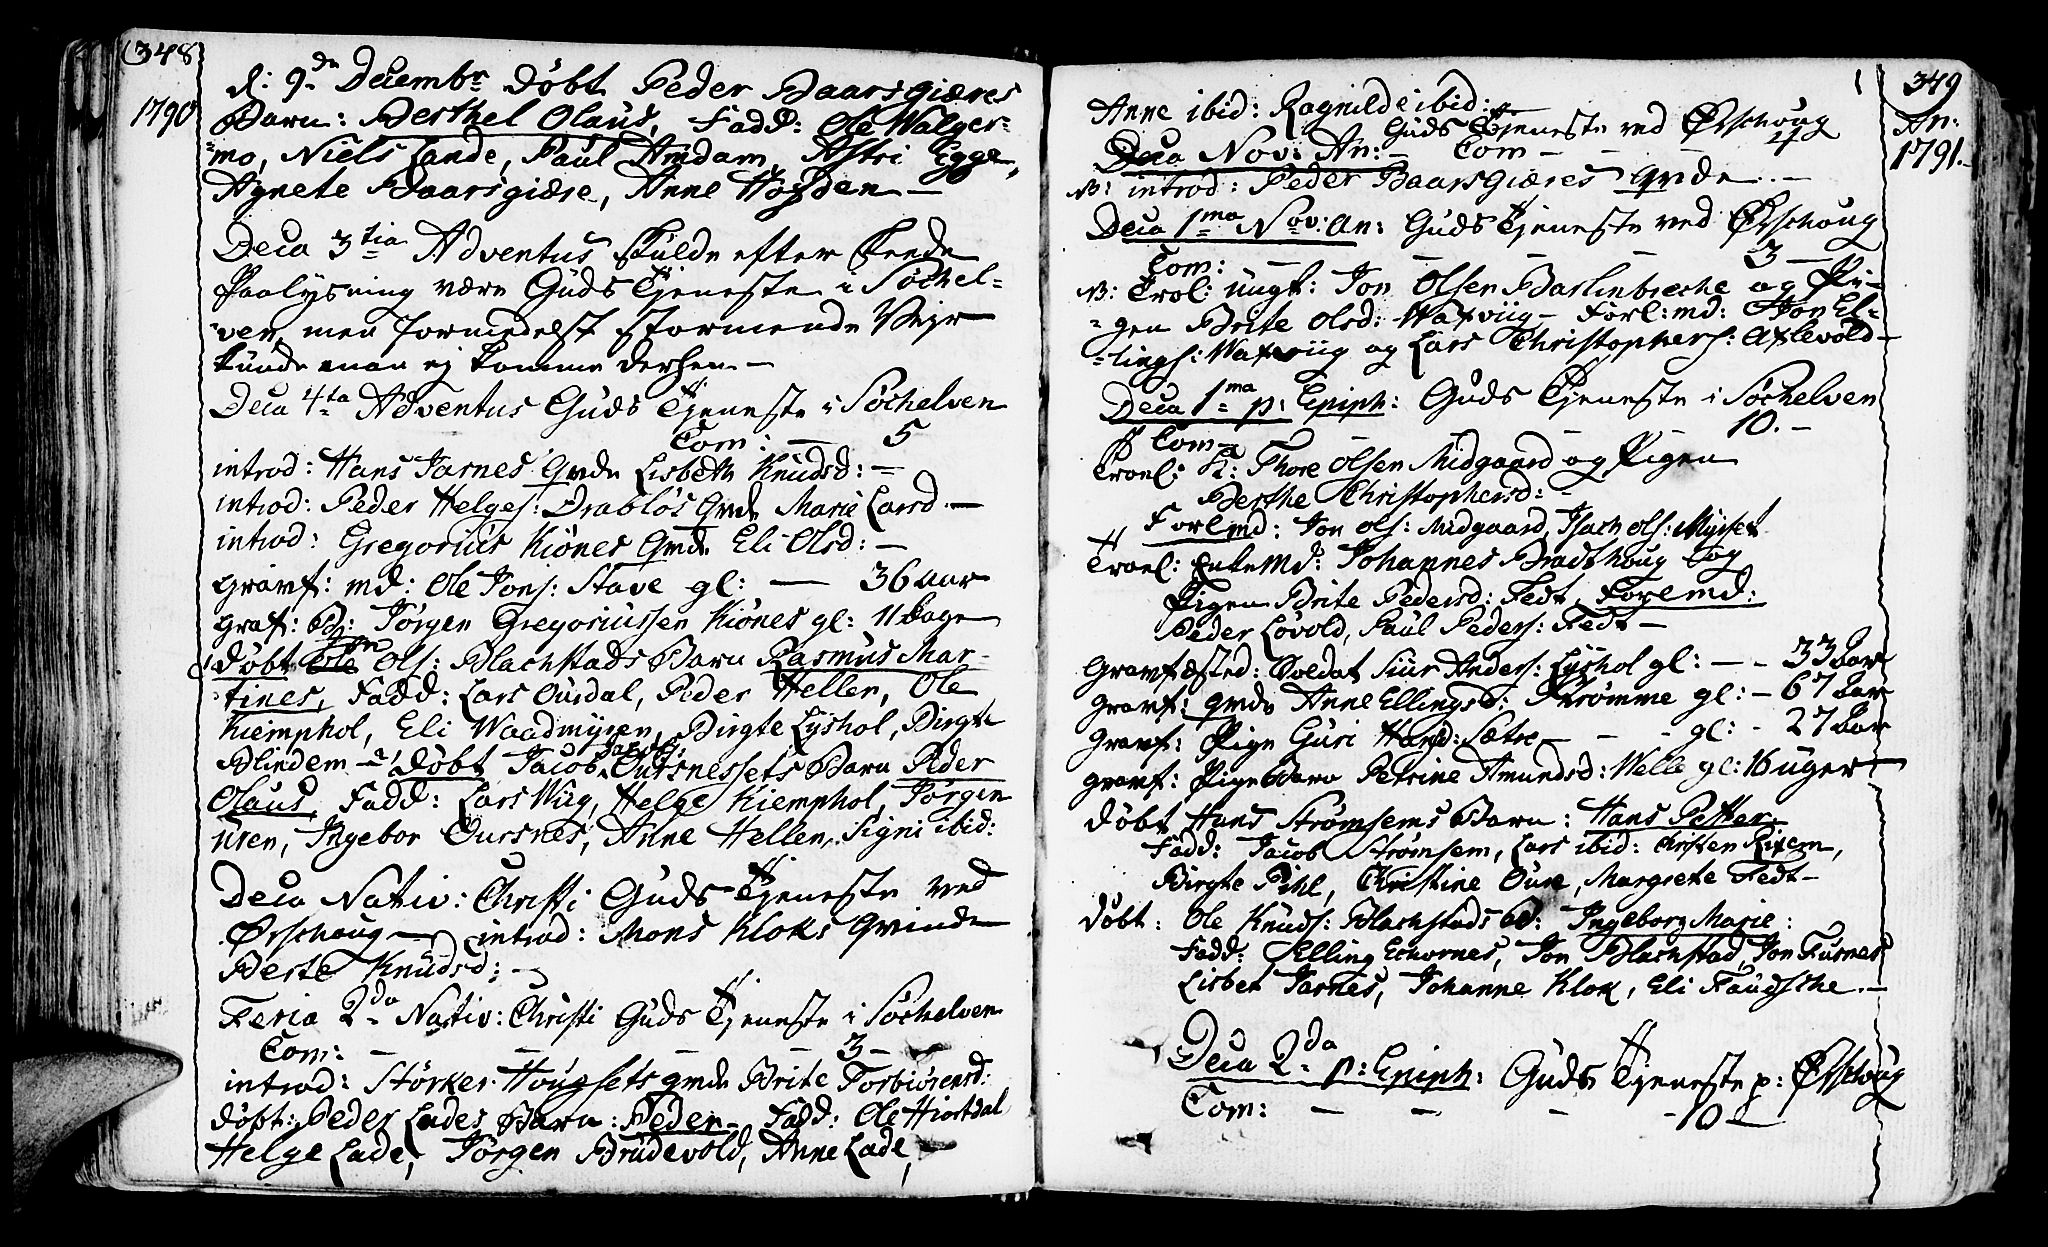 348
1790
d: 9de Decembr Döbt Peder Baarsgiæres
Barn: Berthel Olaus, Fadd: Ole Walger=
=mo, Niels Lande, Paul Amdam, Astri Egge,
Agnete Baarsgiære, Anne Hogden —
Dcca 3tia Adventus skulde efter skeede
Paalysning være Guds Tjeneste i Söchel=
=ven, men formedelst stormende Vejr
kunde man ej komme derhen —
Dcca 4ta Adventus Guds Tjeneste i Söchelven
Com: — 5
introd: Hans Jarnes Qvde Lisbeth Knudsd: —
introd: Peder Helges: Drablös Qvde Marie Larsd —
introd: Gregorius Kiönes Qvde Eli Olsd: —
gravf: md: Ole Jons: Stave gl: — 36 aar
graf: Jörgen Gregoriussen Kiönes gl: 11 Dage
Döbt Ols: Blachstads Barn Rasmus Mar-
tines, Fadd: Lars Ousdal, Peder Hellen, Ole
Kiemphol, Eli Waadmyren, Birgte Lyshol, Birgte
Blindem — Döbt Jacob Oursnessets Barn Peder
Olaus, Fadd: Lars Wiig, Helge Kiemphol, Jörgen
uren, Ingebor Oursnes, Anne Hellen, Signi ibid:
Dcca Nativ: Christi Guds Tjeneste ved
Örschoug — introd: Mons Kloks Qvinde
Berte Knudsd: —
Feria 2da Nativ: Christi Guds Tjeneste i Söchelven
Com: — — — 3 —
introd: Störker Hougsets qvde Brite Torbiörensd:
Döbt: Peder Lades Barn: Peder — Fadd: Ole Hiortdal
Helge Lade, Jörgen Brudevold, Anne Lade, —
349
An:
1791.
Anne ibid: Ragnilde ibid:
Dcca Nov: An: — Guds Tjeneste ved Örschoug
Com — — — 4
introd: Peder Baarsgiæres qvde —
Dcca 1ma Nov: an: Guds Tjeneste ved Örschoug
Com: — — — 3 —
Trol: ungk: Jon Olsen Barlinbreche og Pi-
=gen Brite Olsd: Waxviig — Forl: md: Jon El=
=lings: Waxviig og Lars Christophers: Axlevold —
Dcca 1ma p: Epiph: Guds Tjeneste i Söchelven
Com — — — 10. —
Troel: K: Thore Olsen Midgaard og Pigen
Berthe Christophersd: —
Forlmd: Jon Ols: Midgaard, Isach Ols: Myrset
Troel: Enkemd: Johannes Bradthoug og
Pigen Brite Pedersd: Fedt, Forlmd:
Peder Lövold, Paul Peders: Fedt —
Gravfæsted: Soldat Siur Anders: Lyshol gl: — 33 aar
gravf: qvde Anne Ellingsd: Strömme gl: — 67 aar
Gravf: Pige Guri Hansd: Sætre — — gl: - 27 aar
gravf: Pigebarn Petrine Amundsd: Welle gl: 16 uger —
Döbt Hans Strömsems Barn: Hans Petter
Fadd: Jacob Strömsem, Lars ibid: Christen Rixem,
Birgte Pihl, Christine Oure, Margrete Fedt —
Döbt: Ole Knuds: Blachstads bd: Ingeborg Marie:
Fadd: Elling Echornes, Jon Blachstad, Jon Furnes
Lisbet Jarnes, Johanne Klok, Eli Faugsthe —
Dcca 2da p: Epiph: Guds Tjeneste p: Örschoug
Com: — — — 10 —